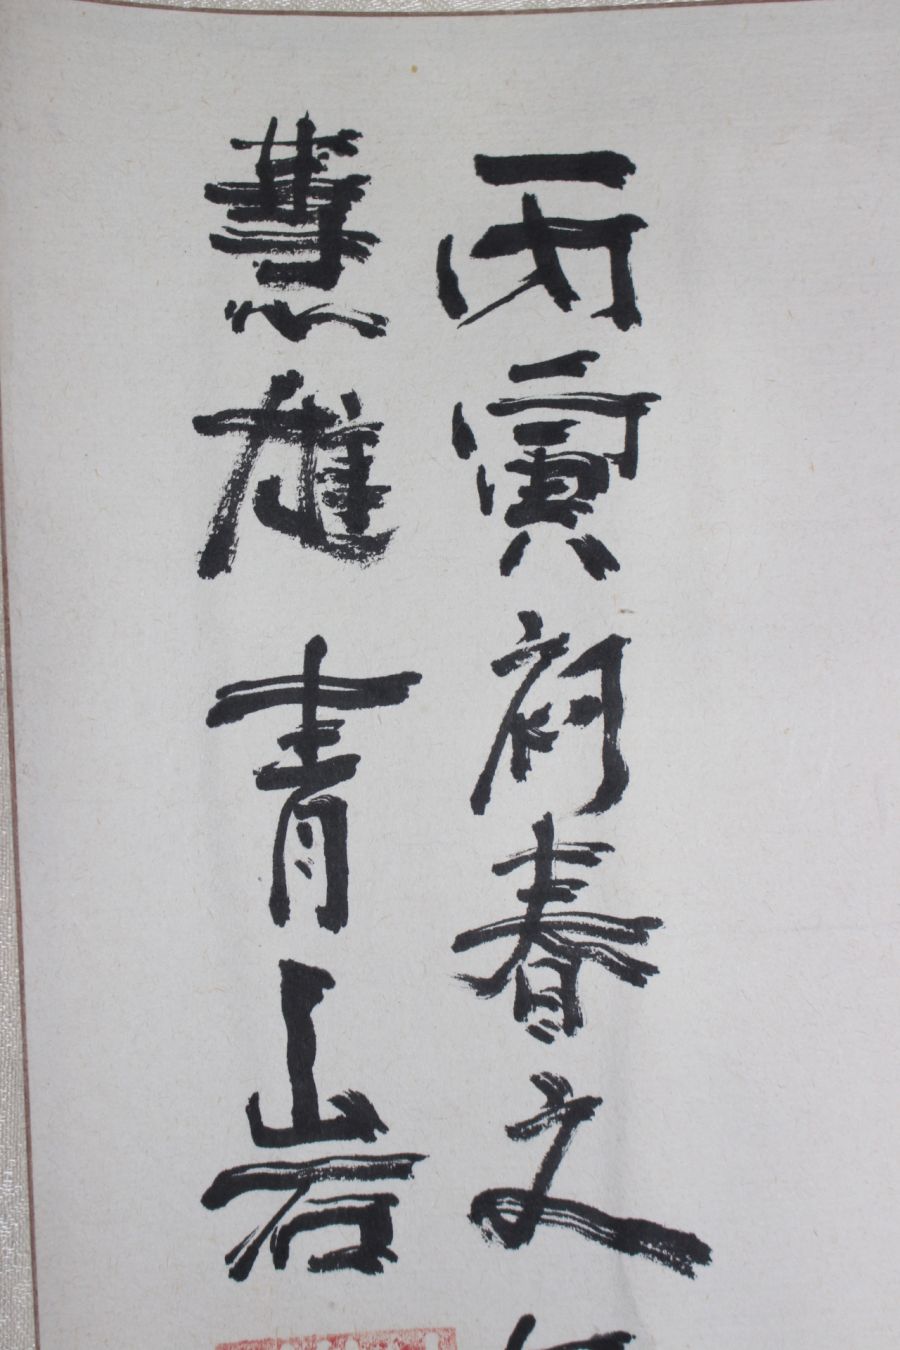 丙寅初春文
慧雄青山岩